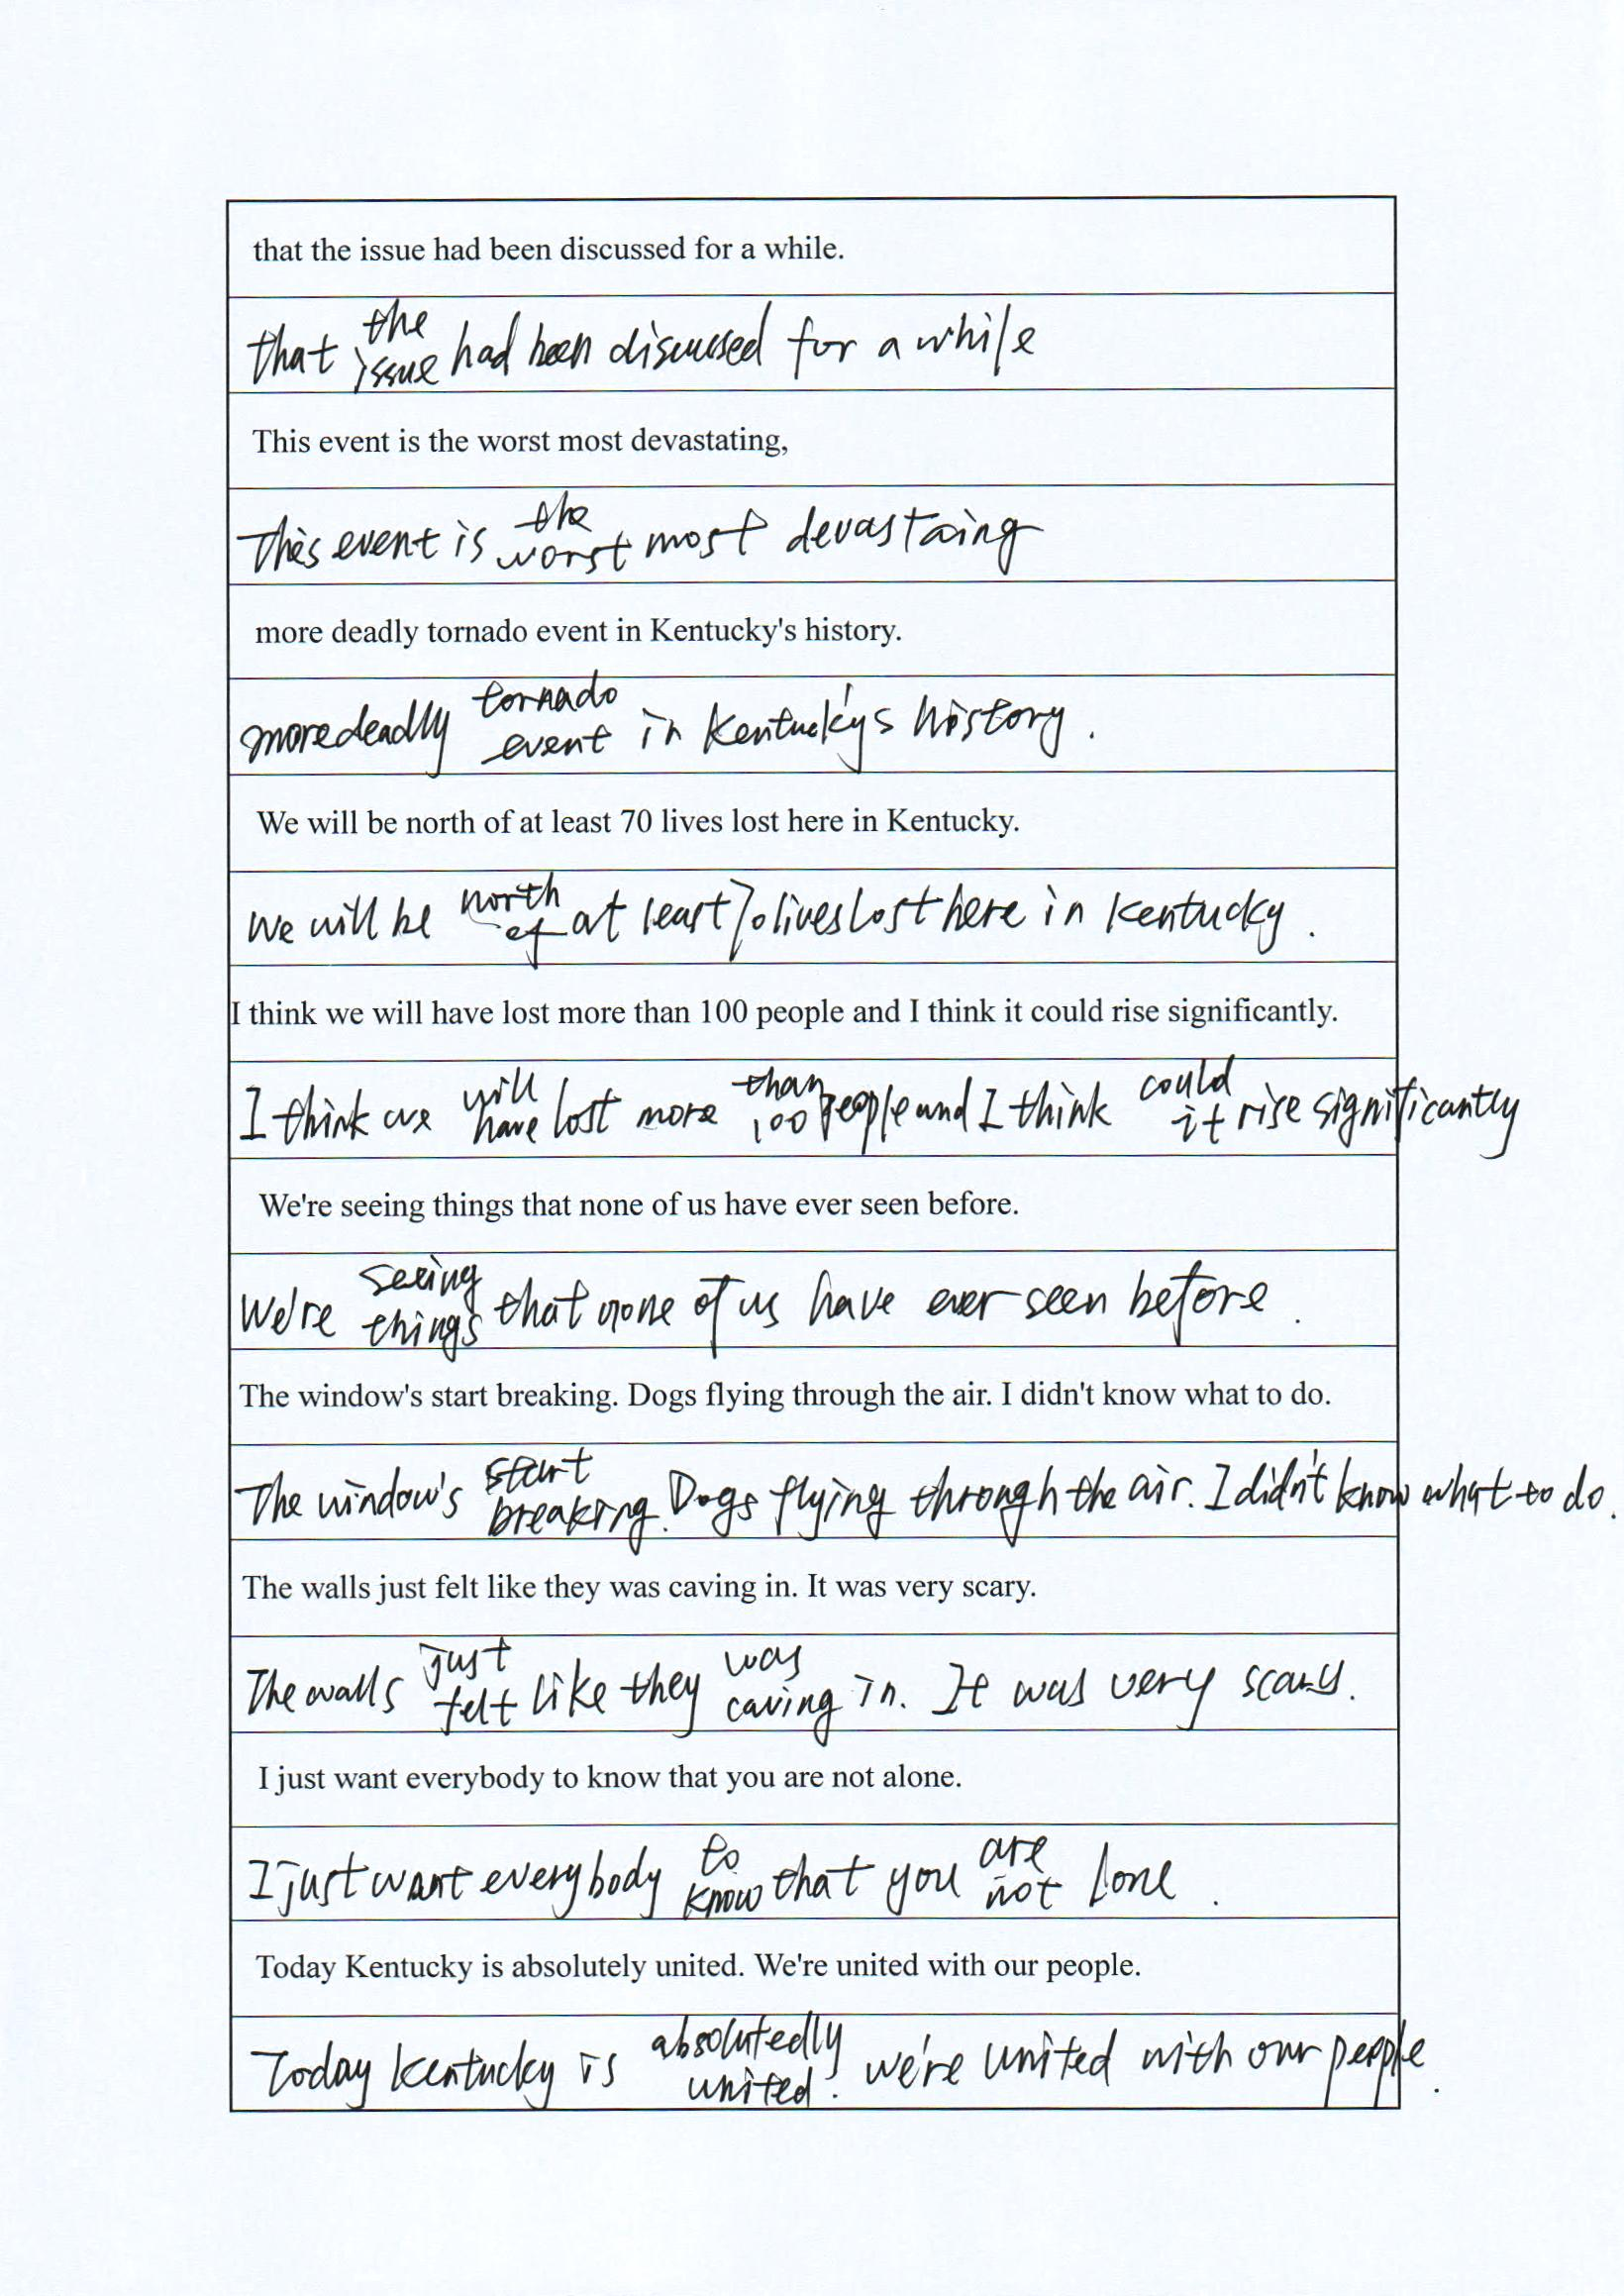 that the issue had been discussed for a while.
that the issue had been discussed for a while
This event is the worst most devastating,
This event is the worst most devastaing
more deadly tornado event in Kentucky's history.
more deadly tornado event in Kentucky's history.
We will be north of at least 70 lives lost here in Kentucky.
We will be north of at least 70 lives lost here in Kentucky.
I think we will have lost more than 100 people and I think it could rise significantly.
I think we will have lost more than 100 people and I think could it rise significantly
We're seeing things that none of us have ever seen before.
We're seeing things that none of us have ever seen before.
The window's start breaking. Dogs flying through the air. I didn't know what to do.
The window's start breaking. Dogs flying through the air. I didn't know what to do.
The walls just felt like they was caving in. It was very scary.
The walls just felt like they was caving in. It was very scary.
I just want everybody to know that you are not alone.
I just want everybody to know that you are not lone.
Today Kentucky is absolutely united. We're united with our people.
Today Kentucky is absolutedly united. we're united with our people.